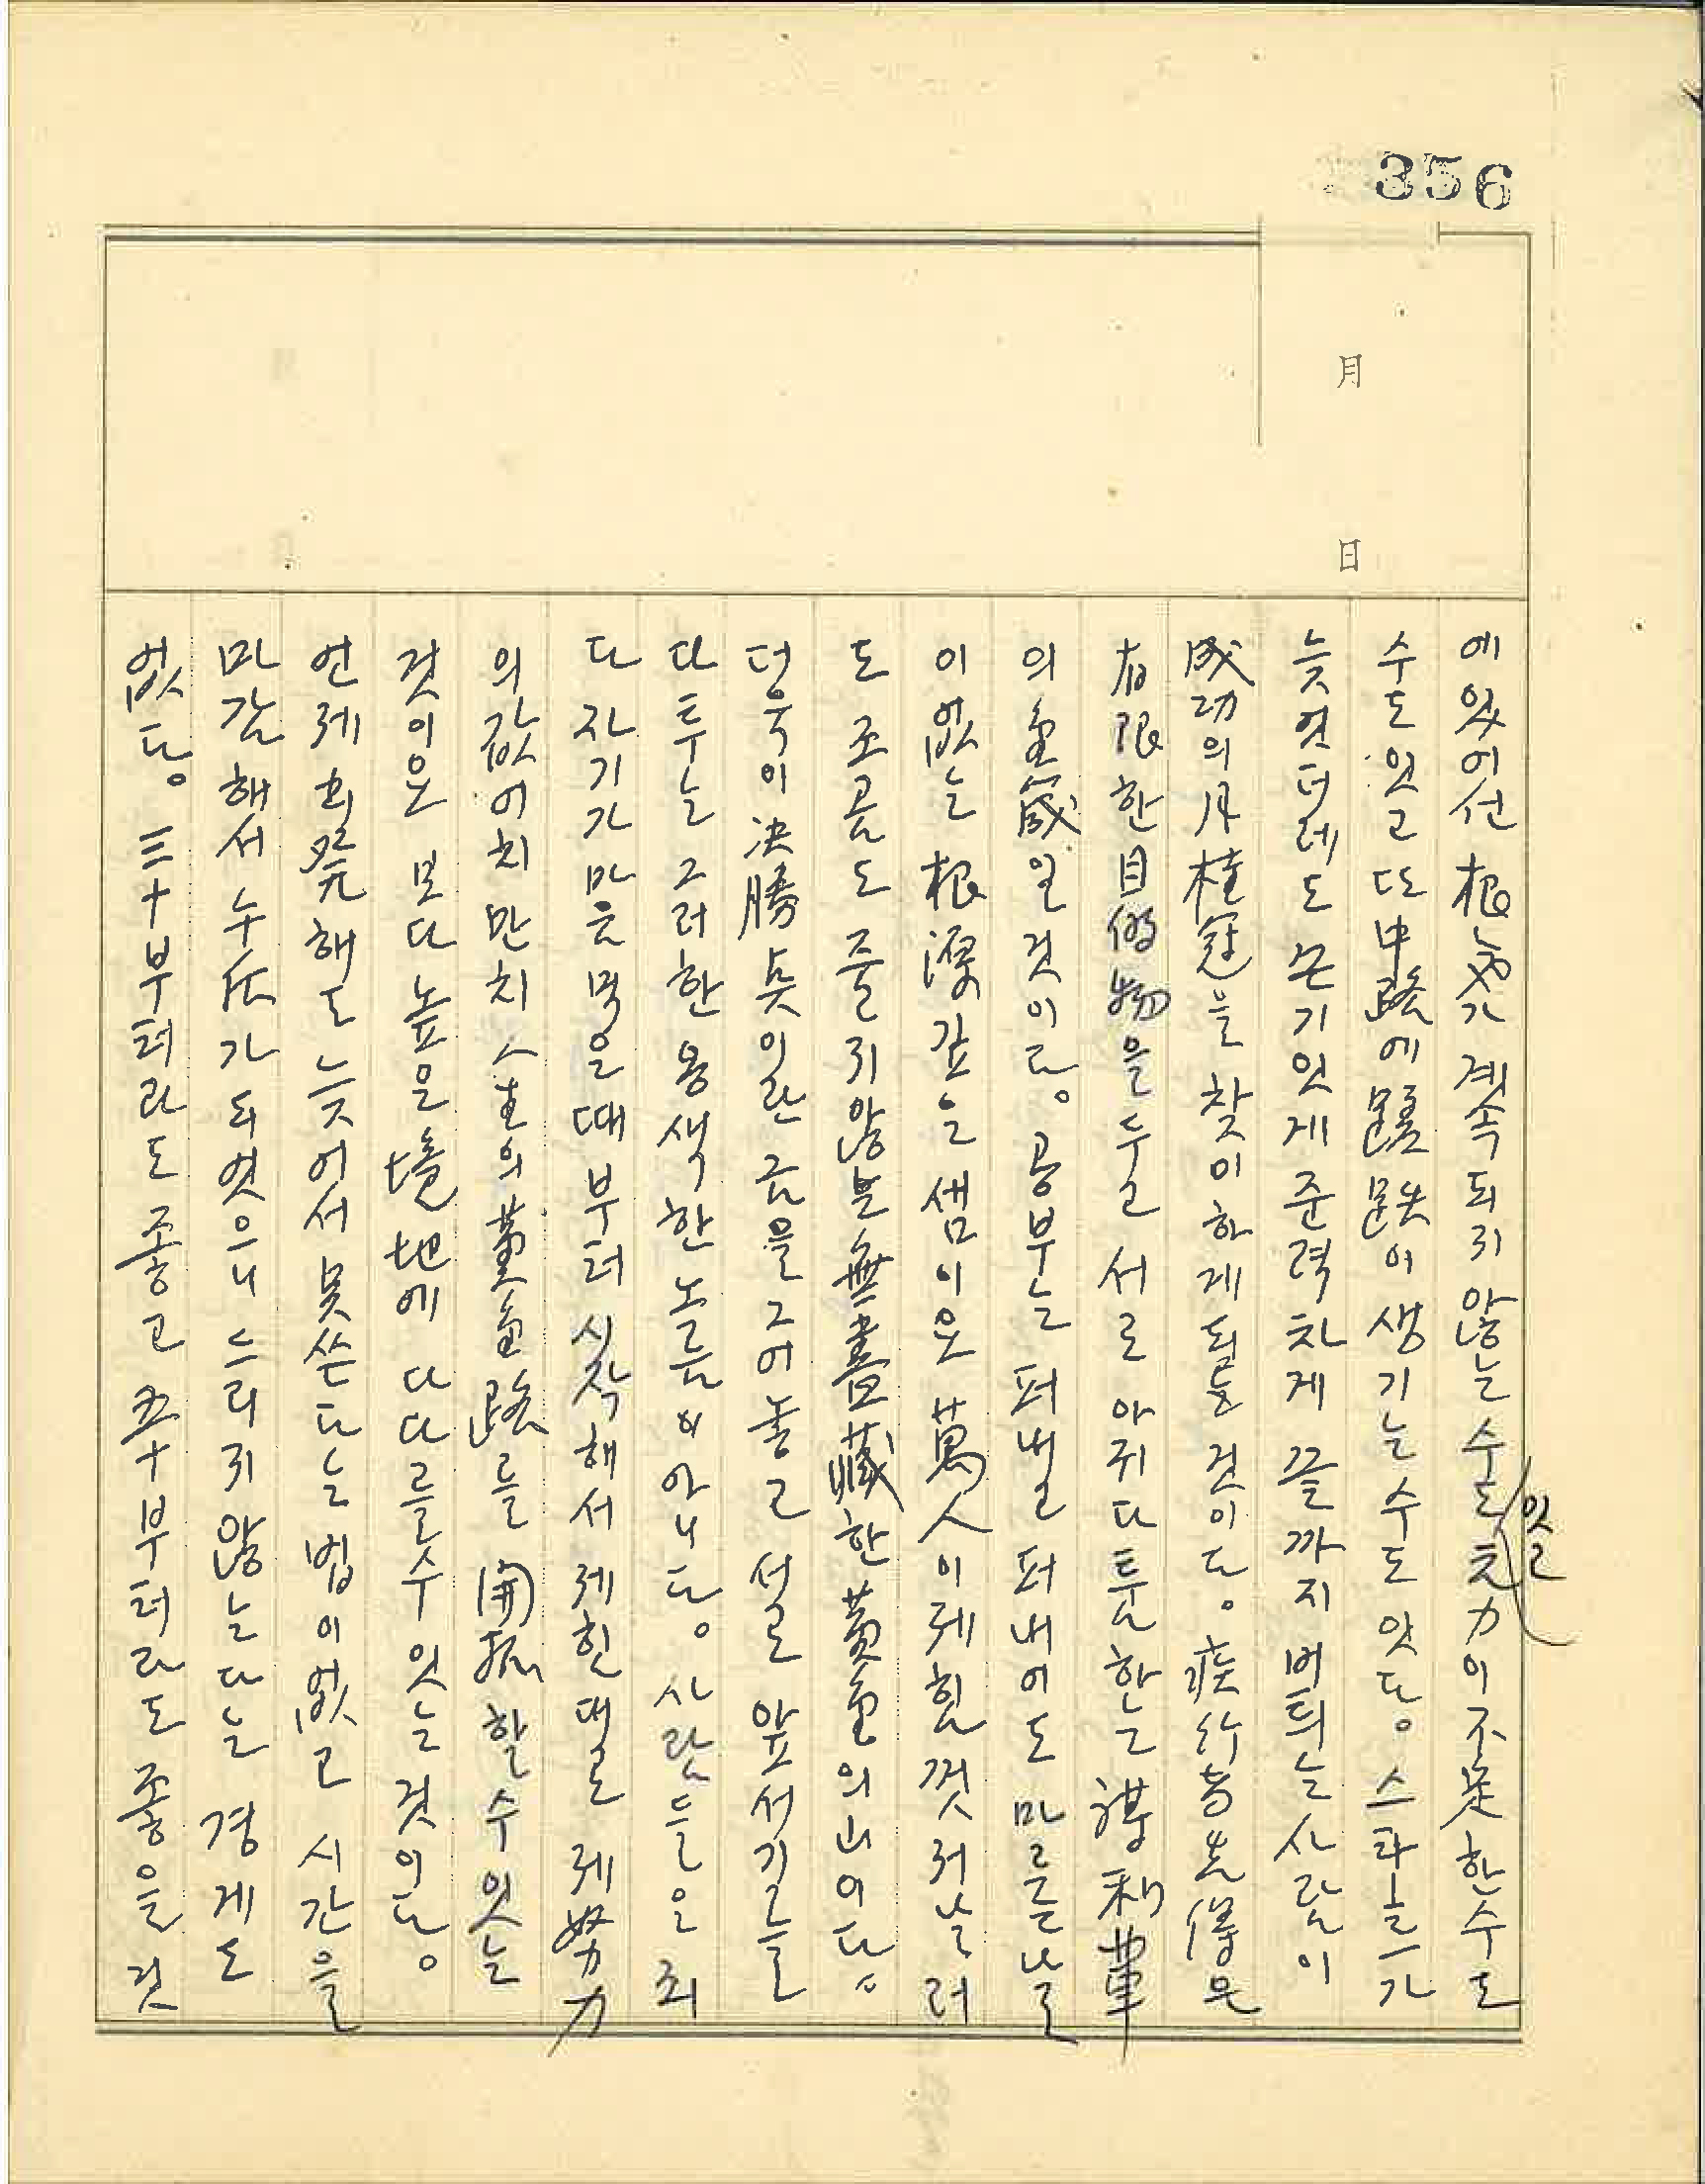 356
月
日
에 있어선 根氣가 계속되지 않는 수도 잇고 力이 不足한 수도
수도 잇고 또 中路에 蹉跌이 생기는 수도 잇다。 스타―트가
늦엇더래도 끈기잇게 준력차게 끌까지 버틔는 사람이
成功의 月桂冠을 찾이하게 되는 것이다。 疾行者先得은
有限한 目的物을 두고 서로 아귀다툼하는
의 일 것이다。 공부는 퍼내고 퍼내어도 마르는 날
이 없는 根源 깊은 샘이오 萬人이 제 힘껏 저날러
도 조곰도 줄지 않는 無盡藏한 黃金의 山이다。
더욱이 決勝点이란 금을 그어놓고 서로 앞서기를
다투는 그러한 용색한 노름이 아니다。 사람들은 죄
다 자기가 마음먹을 때부터 시작해서 제힌대로 제 努力
의 값어치만치 人生의 黃金路를 開拓할 수 잇는
것이오 보다 높은 境地에 다다를 수 잇는 것이다。
언제 出發해도 늦어서 못쓴다는 법이 없고 시간을
마감해서 누가 되엿으니 느리지 않는다는 경게도
없다。 三十부터라도 좋고 五十부터라도 좋을 것